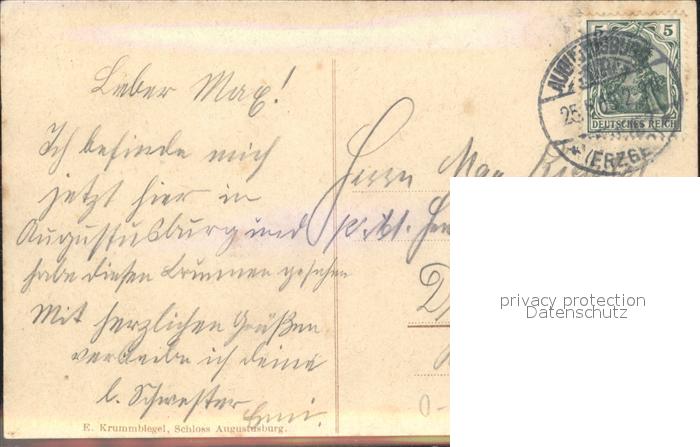 Lieber Max!
Ich befinde mich
jetzt hier in
Augustusburg und
habe diesen Brunnen gesehen
Mit herzlichen Grüßen
verbleibe ich deine
l. Schwester
E. Krummbiegel, Schloss Augustusburg.
5 5
DEUTSCHES REICH
AUGUSTUSBURG
(ERZGE
25.
Herrn Max
privacy protection
Datenschutz